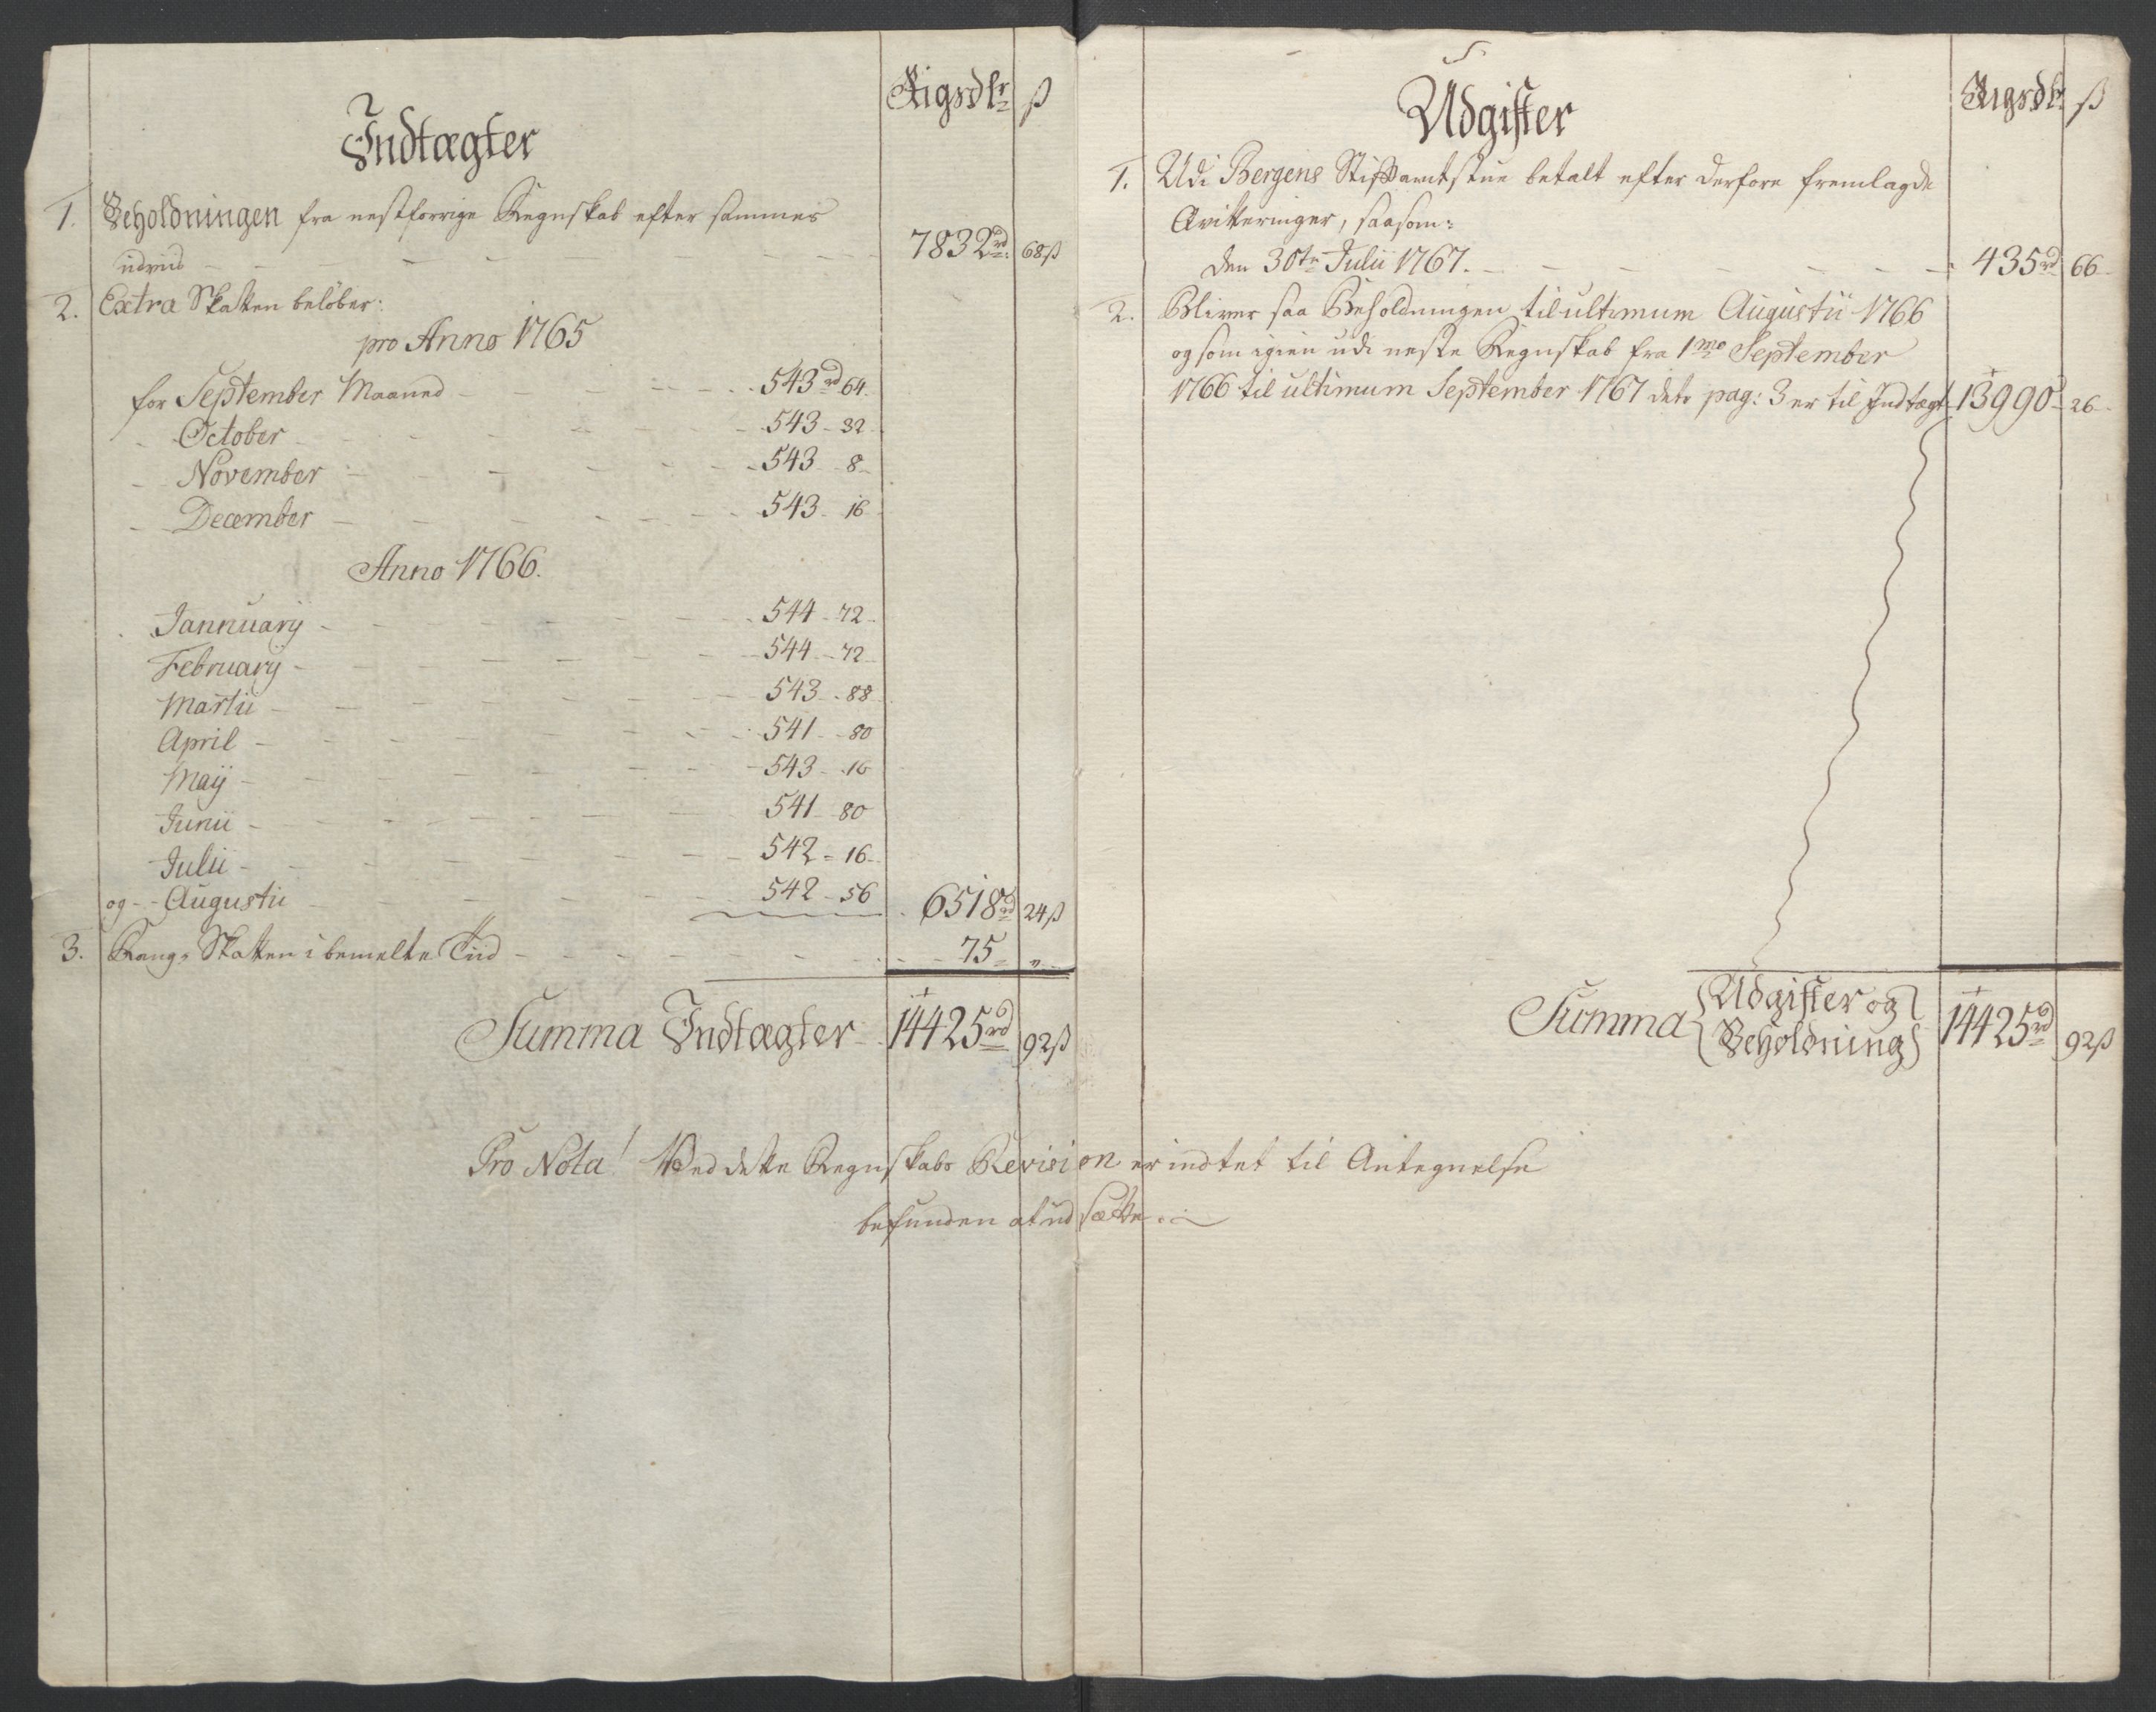 Indtægter
Rigsdlr ß
1. Beholdningen fra nestforrige Regnskab efter sammes
udviis 7832rd: 68ß
2. Extra Skatten beløber:
pro Anno 1765
for September Maaned 543rd 64.
October 543 - 32
November 543 - 8
December 543 - 16
Anno 1766.
Jannuarij 544 - 72
Februarij 544 - 72
Martii 543 - 88
April 541 - 80
Maij 543 - 16
Junii 541 - 80
Julii 542 - 16
og - Augustii 542 - 56 6518rd 24ß
3. Rang-Skatten i bemelte Tiid 75 „
Summa Indtægter 14425rd 92ß
Udgifter
Rigsdlr ß
1. Udi Bergens Stiftamtstue betalt efter derfore fremlagde
Qvitteringer, saasom:
den 30te Julii 1767. 435rd 66
2. Bliver saa Beholdningen til ultimum Augustii 1766
og som igien udi neste Regnskab fra 1mo September
1766 til ultimum September 1767 dets pag: 3 er til Indtægt 13990 - 26
Summa Udgifter og
Beholdning 14425rd 92ß
Pro Nota! Ved dette Regnskabs Revision er indtet til Antegnelse
befunden at udsætte.